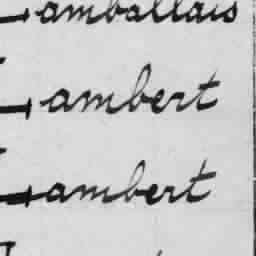 Lamballais
Lambert
Lambert